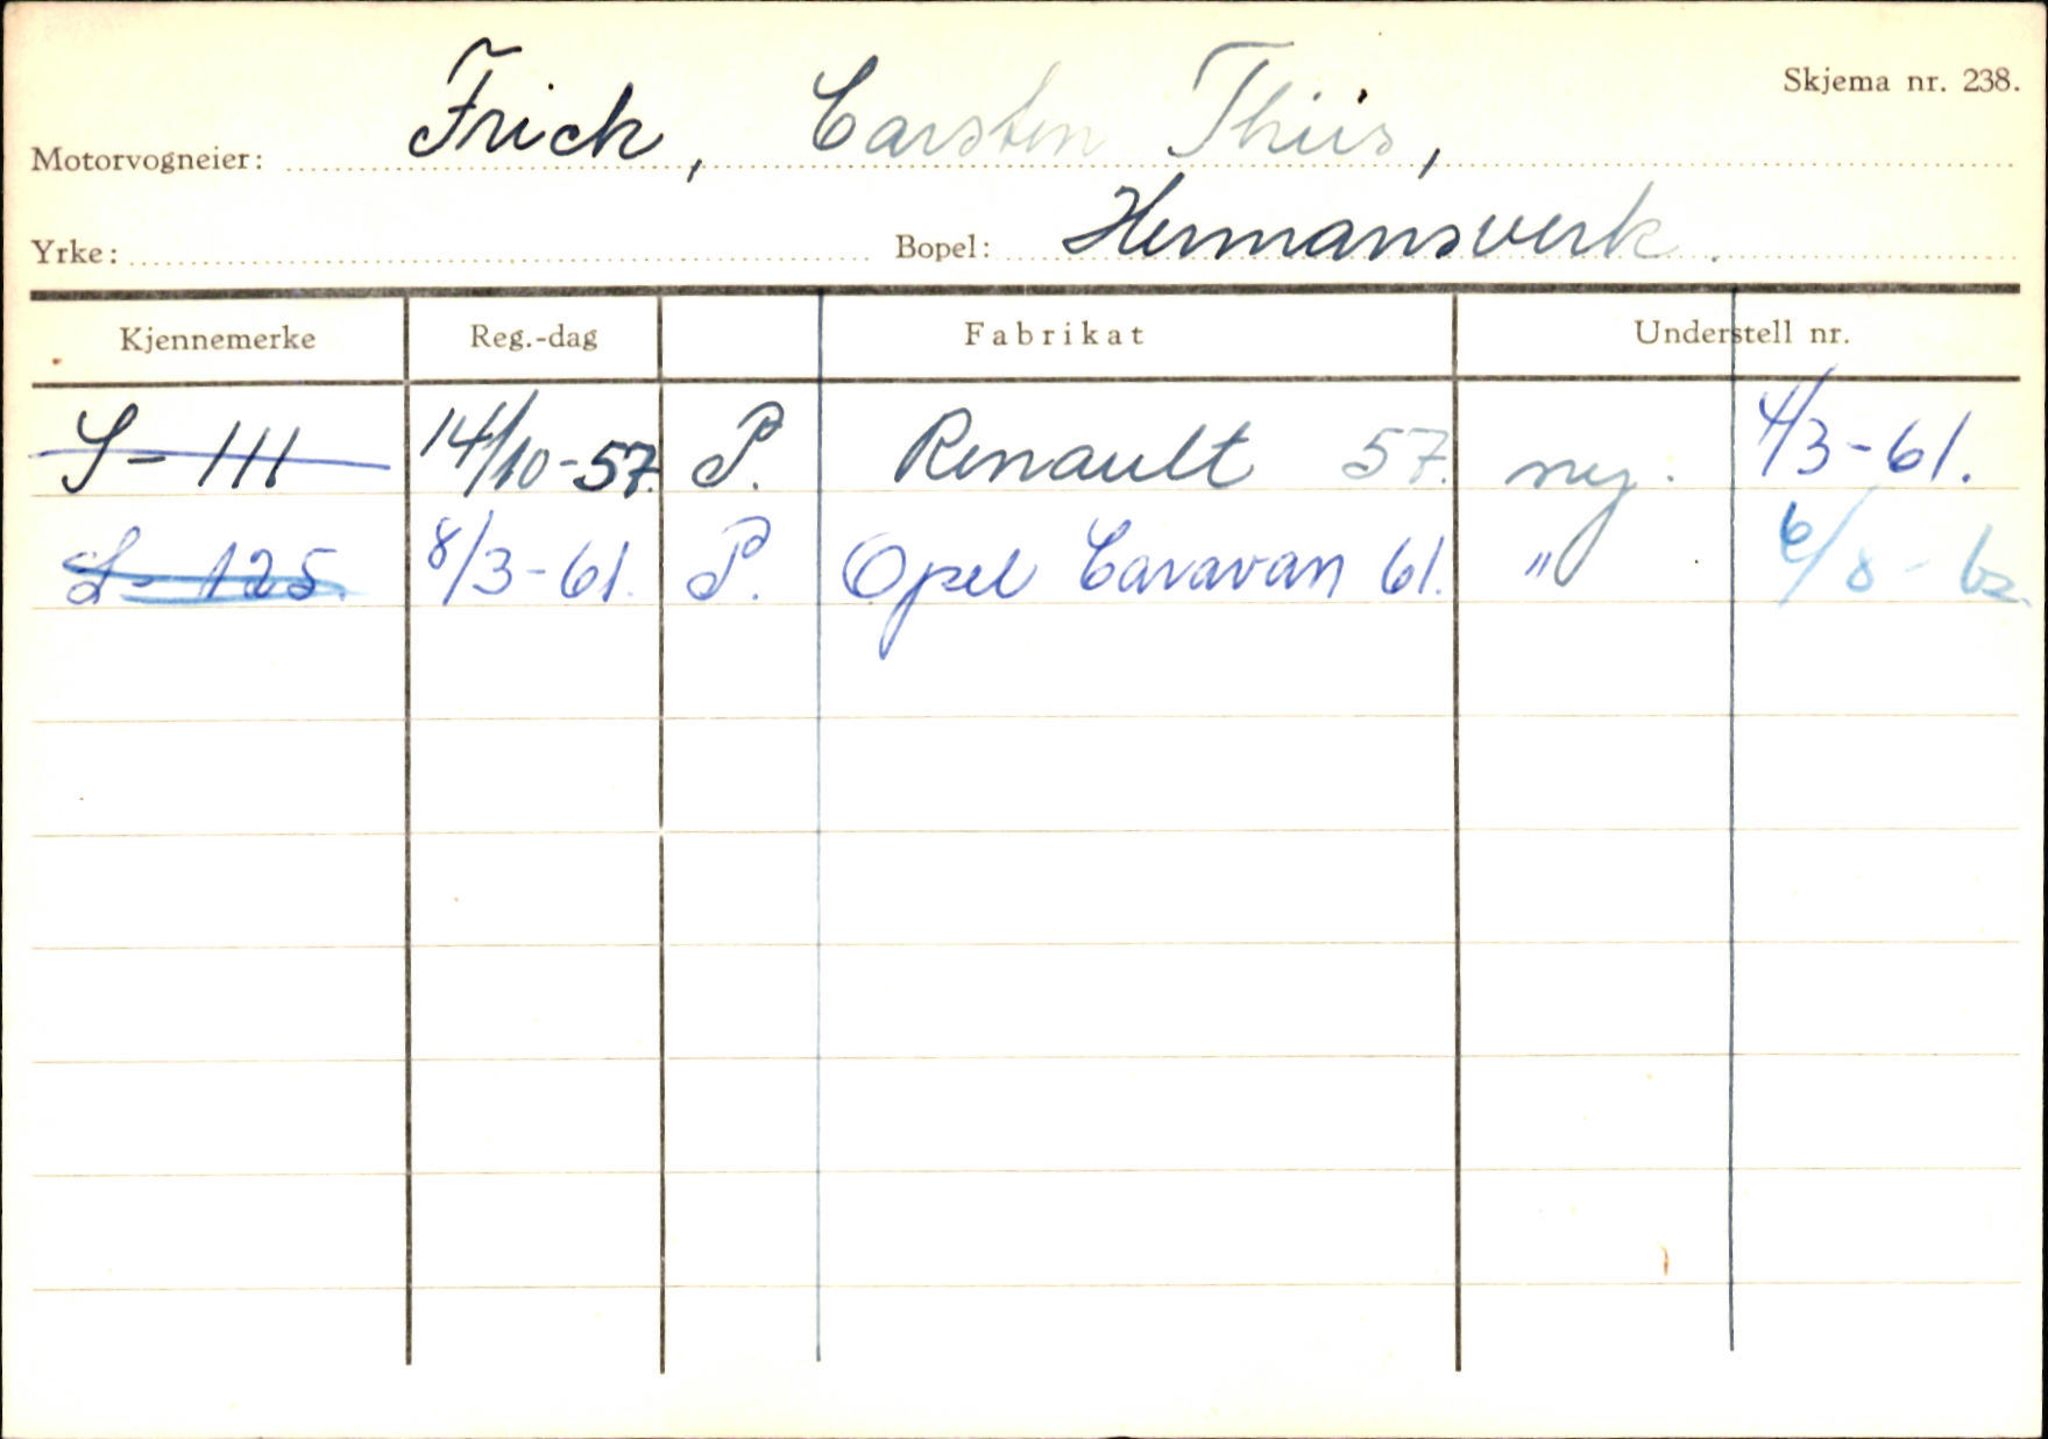 Skjema nr. 238.
Motorvogneier: Frich, Carsten Thiis,
Yrke: Bopel: Hermansverk.
Kjennemerke Reg.-dag Fabrikat Understell nr.
S-111 14/10-57. P. Renault 57. ny. 4/3-61.
S-125. 8/3-61. P. Opel Caravan 61. " 6/8-62.